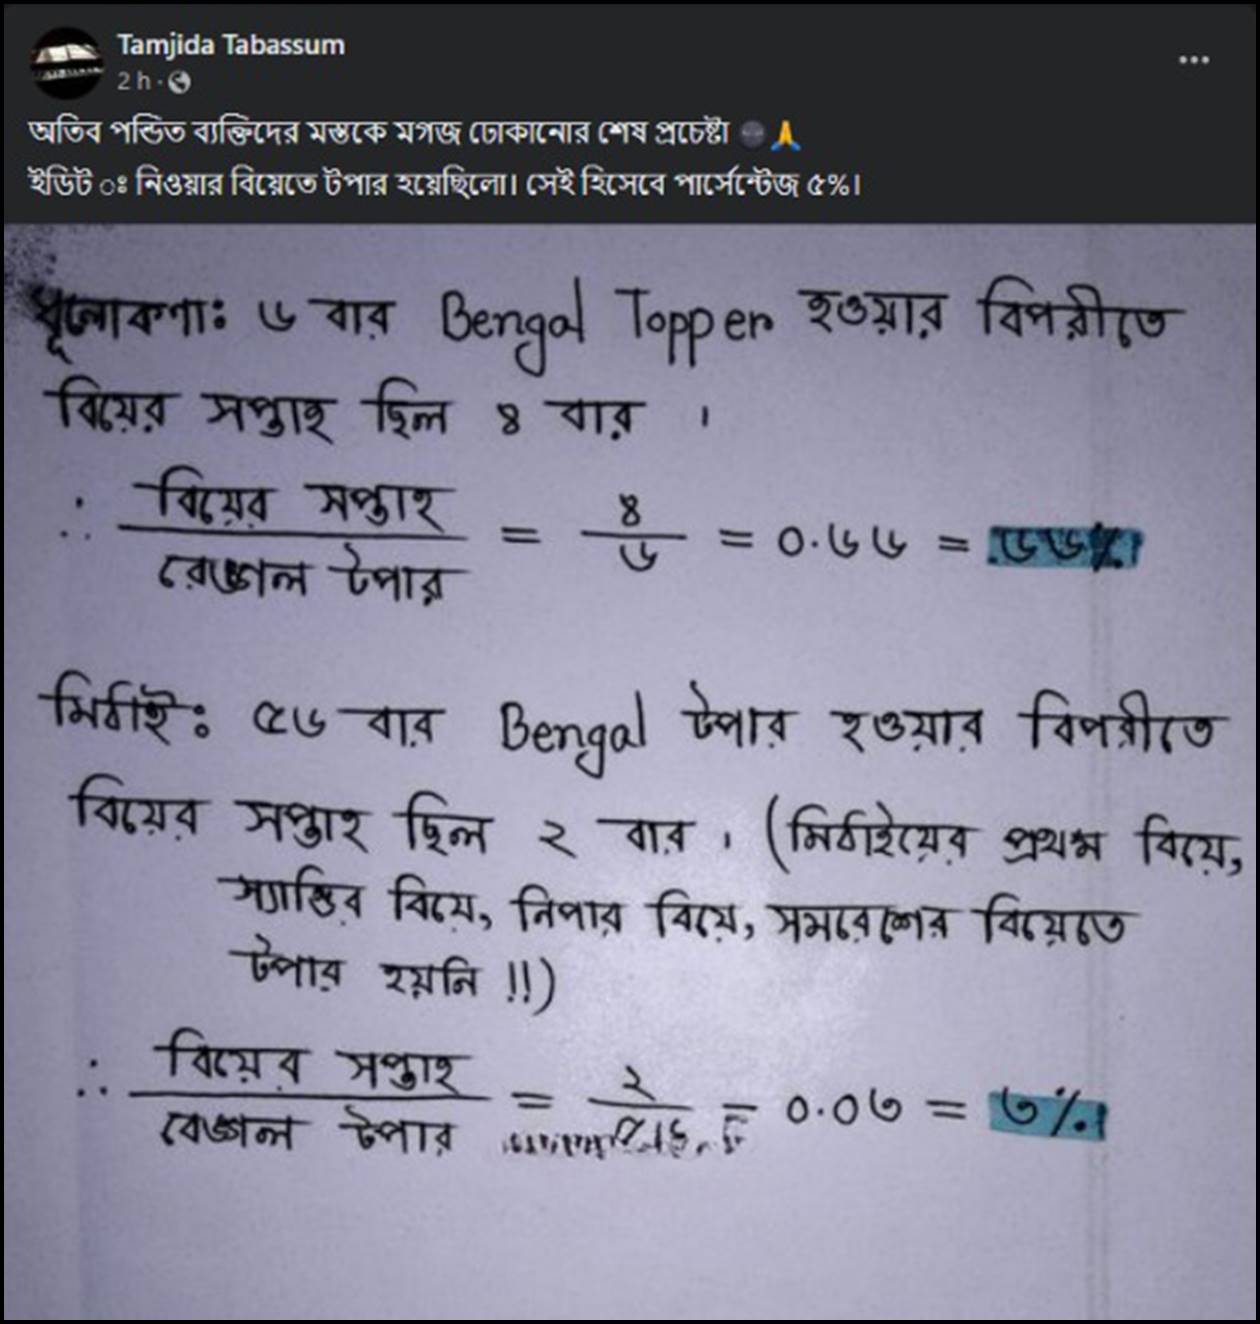 Tamjida Tabassum
2 h ·
অতিব পন্ডিত ব্যক্তিদের মস্তকে মগজ ঢোকানোর শেষ প্রচেষ্টা 🌚🙏
ইডিট ঃ নিওয়ার বিয়েতে টপার হয়েছিলো। সেই হিসেবে পার্সেন্টেজ ৫%।
ধূলোকণাঃ ৬ বার Bengal Topper হওয়ার বিপরীতে
বিয়ের সপ্তাহ ছিল ৪ বার ।
∴ বিয়ের সপ্তাহ / বেঙ্গাল টপার = ৪ / ৬ = ০.৬৬ = ৬৬%।
মিঠাইঃ ৫৬ বার Bengal টপার হওয়ার বিপরীতে
বিয়ের সপ্তাহ ছিল ২ বার । (মিঠাইয়ের প্রথম বিয়ে,
স্যান্ডির বিয়ে, নিপার বিয়ে, সমরেশের বিয়েতে
টপার হয়নি !!)
∴ বিয়ের সপ্তাহ / বেঙ্গাল টপার = ২ / = ০.০৩ = ৩%।